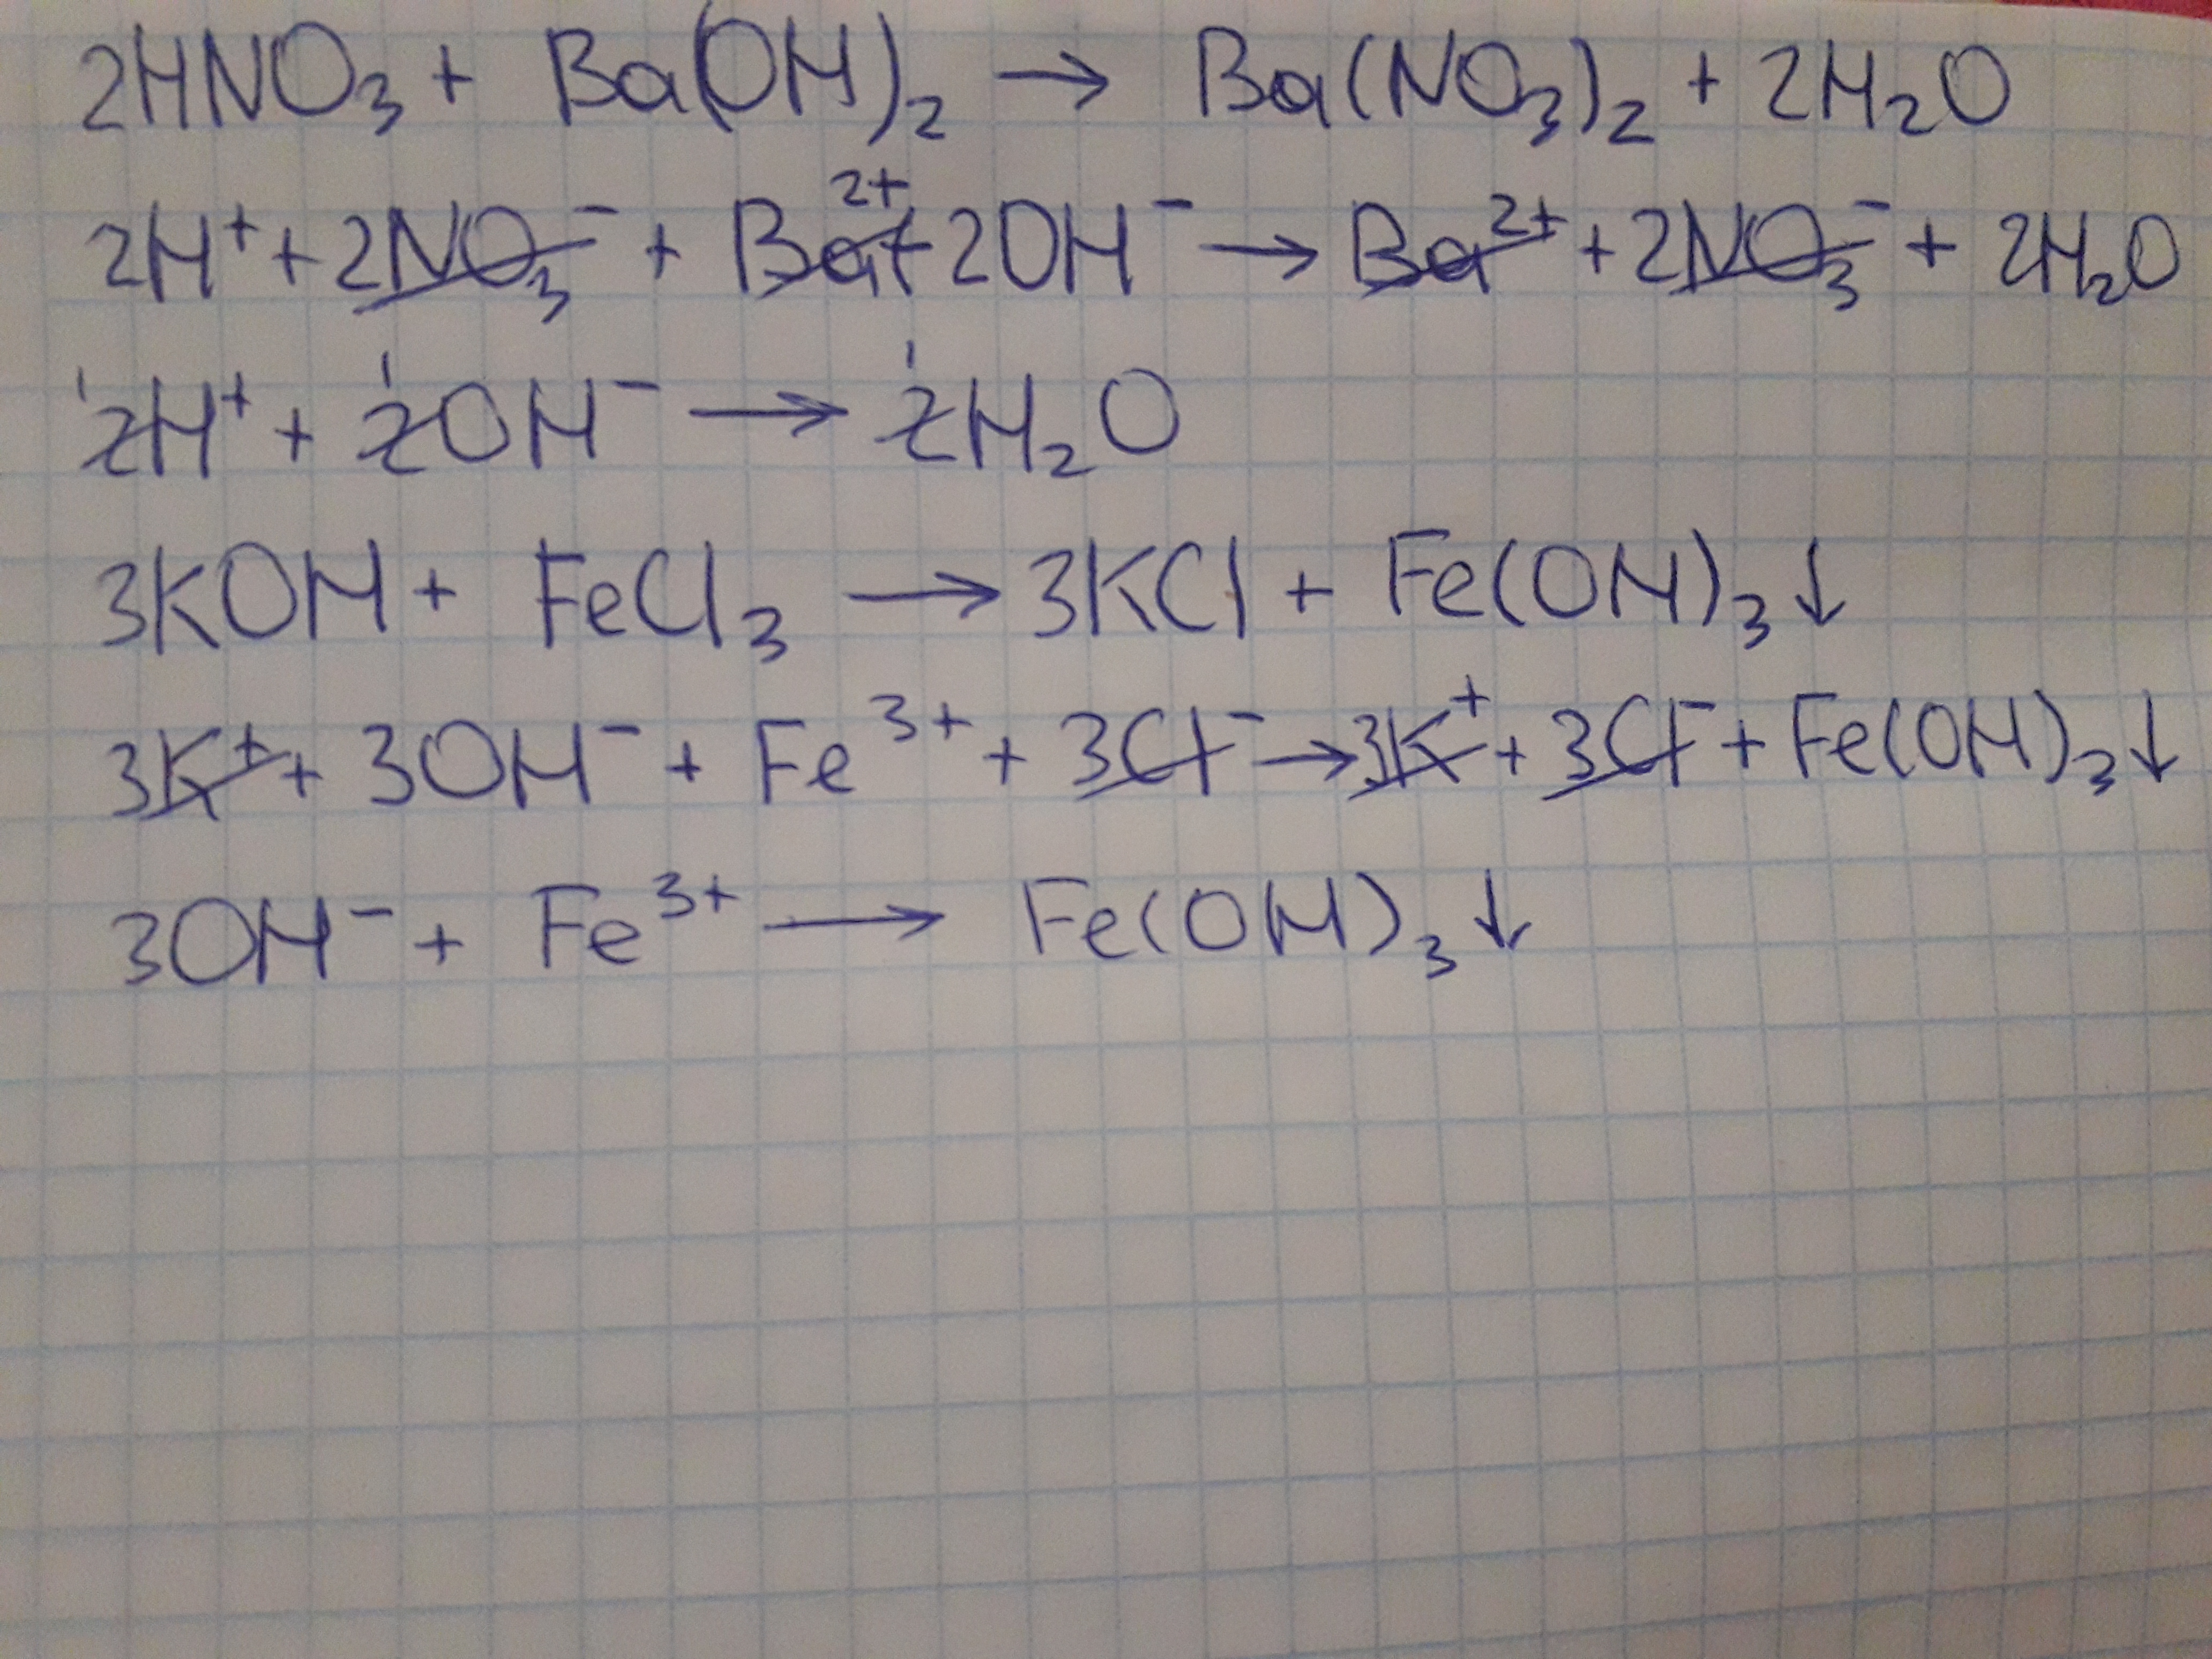 2HNO₃ + Ba(OH)₂ → Ba(NO₃)₂ + 2H₂O
2H⁺ + 2NO₃⁻ + Ba²⁺ + 2OH⁻ → Ba²⁺ + 2NO₃⁻ + 2H₂O
¹2H⁺ + ¹2OH⁻ → ¹2H₂O
3KOH + FeCl₃ → 3KCl + Fe(OH)₃↓
3K⁺ + 3OH⁻ + Fe³⁺ + 3Cl⁻ → 3K⁺ + 3Cl⁻ + Fe(OH)₃↓
3OH⁻ + Fe³⁺ → Fe(OH)₃↓